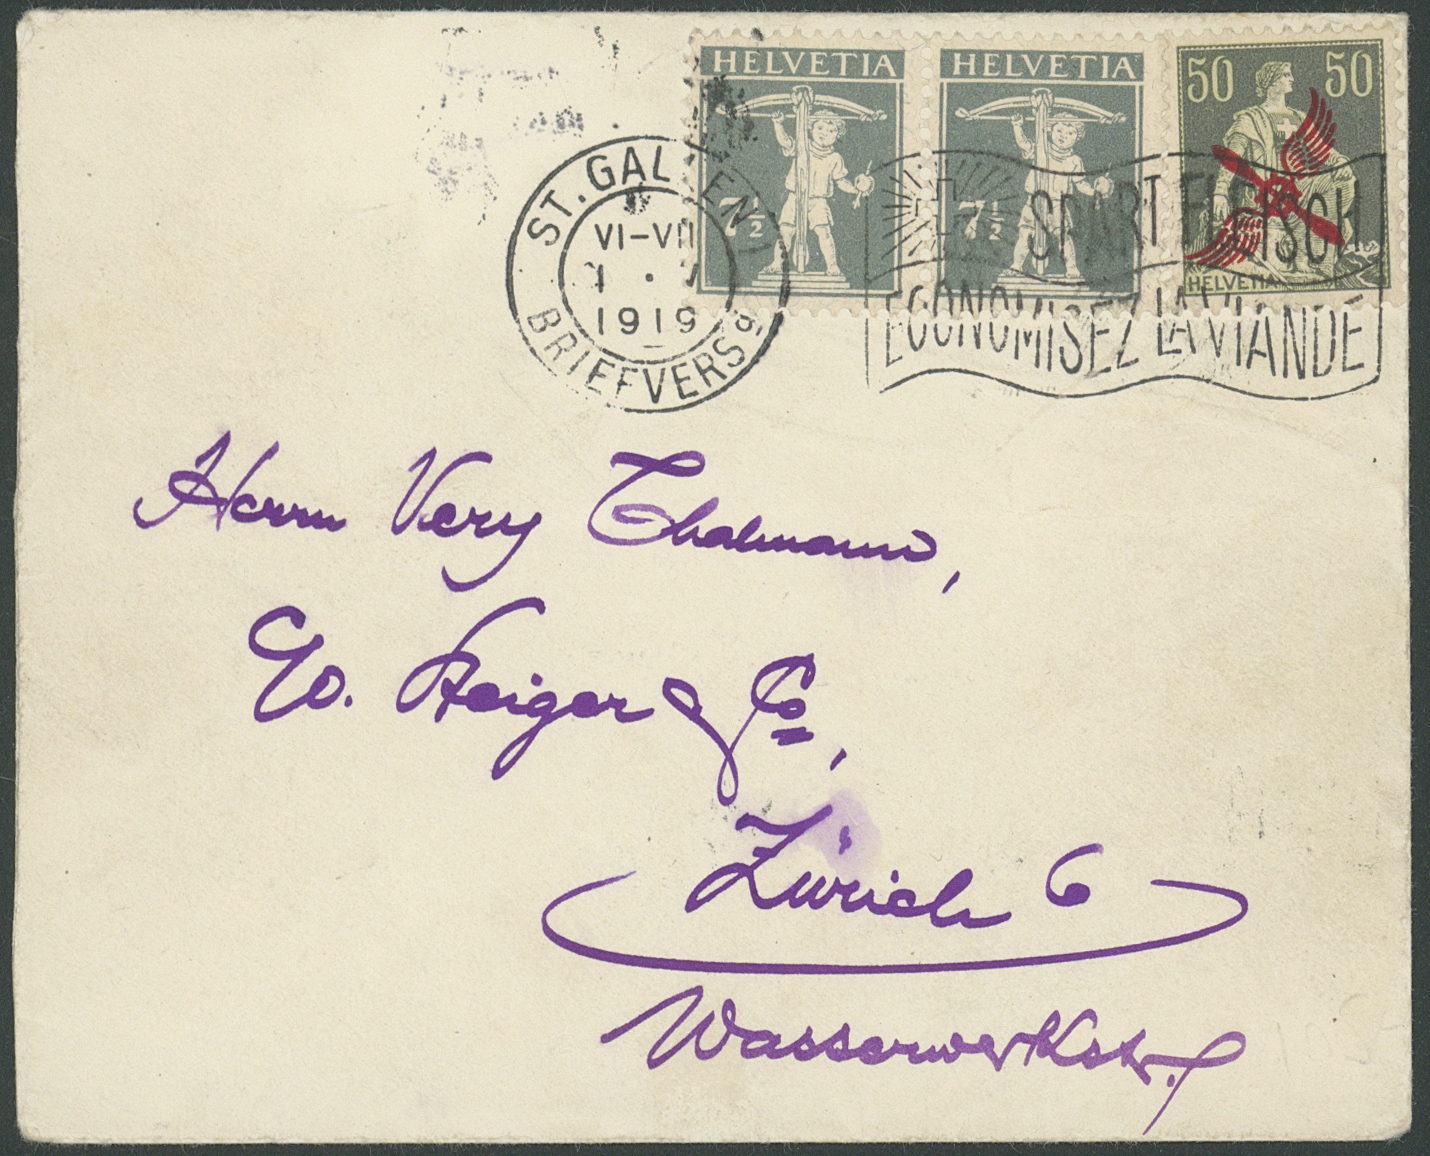 HELVETIA
HELVETIA
50 50
7½
7½
HELVETIA
ST. GALLEN 1
VI-VII
1919
BRIEFVERSd
SPART FLEISCH
ECONOMISEZ LA VIANDE
Herrn Very Thalmann,
Steiger & Co,
Zürich 6
Wasserwerkstr.